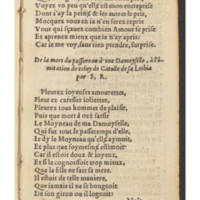 Voyez vn peu qu'elle est mon entreprise
Dont i'ay la peine & les autre le pris,
Mocquez vous en ia n'en serez repris
Vous qui sçauez combien Amour se prise
Et aprenez mieux que ie n'ay apris,
Car ie me voy, sans rien prendre, surprise.
De la mort du passereau d'vne Damoyselle, à l'i-
mitation de celuy de Catulle de sa Lesbia
par S. R.
Pleurez ioyeuses amourettes,
Pleurez caresses foliettes,
Pleurez tous hommes de plaise,
Puis que mort à osé faisir
Le Moyneau de ma Damoyselle,
Qui fut tout le passetemps d'elle,
Ie dy le Moyneau qu'elle aymoit,
Et plus que soymesme estimoit:
Car il estoit doux & ioyeux,
Et si la cognoissoit trop mieux,
Que la fille ne fait sa mere.
Il estoit de telle maniere,
Que iamais il ne s'eslongnoit
Ou de son giron ne partoit,